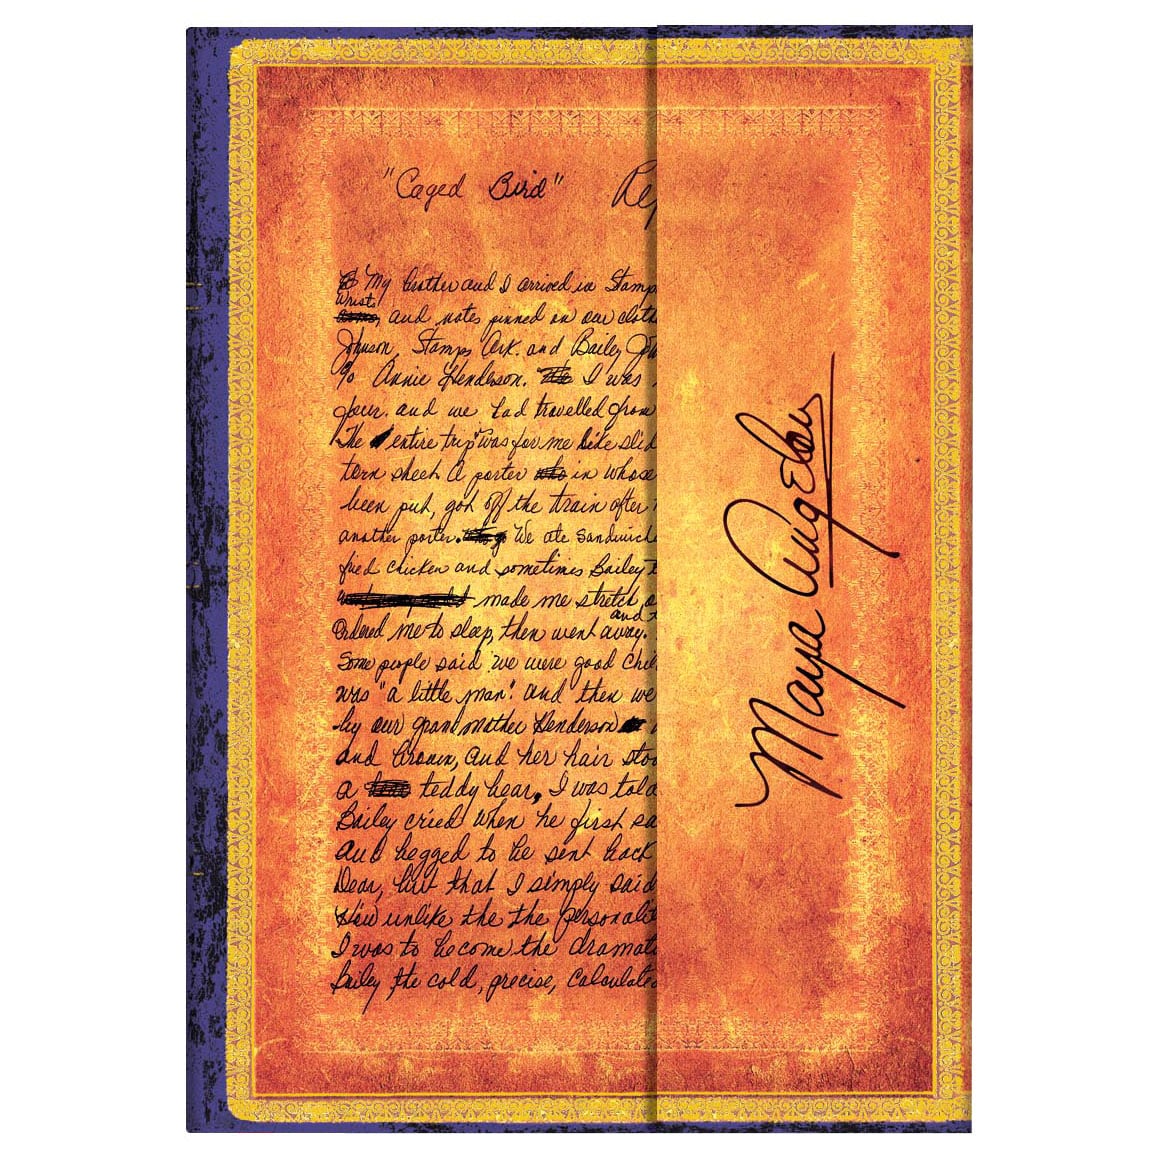 "Caged Bird" Rep
My brother and I arrived in Stamp
wrists
and notes pinned on our cloth
Johnson, Stamps Ark. and Bailey Joh
c/o Annie Henderson. I was
four. and we had travelled from
The entire trip was for me like slid
torn sheet A porter in whose
been put, got off the train after
another porter. We ate sandwiche
fried chicken and sometimes Bailey
made me stretch
and
Ordered me to sleep, then went away.
Some people said we were good chil
was "a little man". and then we
by our grandmother Henderson
and brown, and her hair stoo
a teddy bear, I was told
Bailey cried when he first sa
And begged to be sent back
Dear, but that I simply said
How unlike the the personalit
I was to become the dramat
Bailey the cold, precise, calculate
Maya Angelou